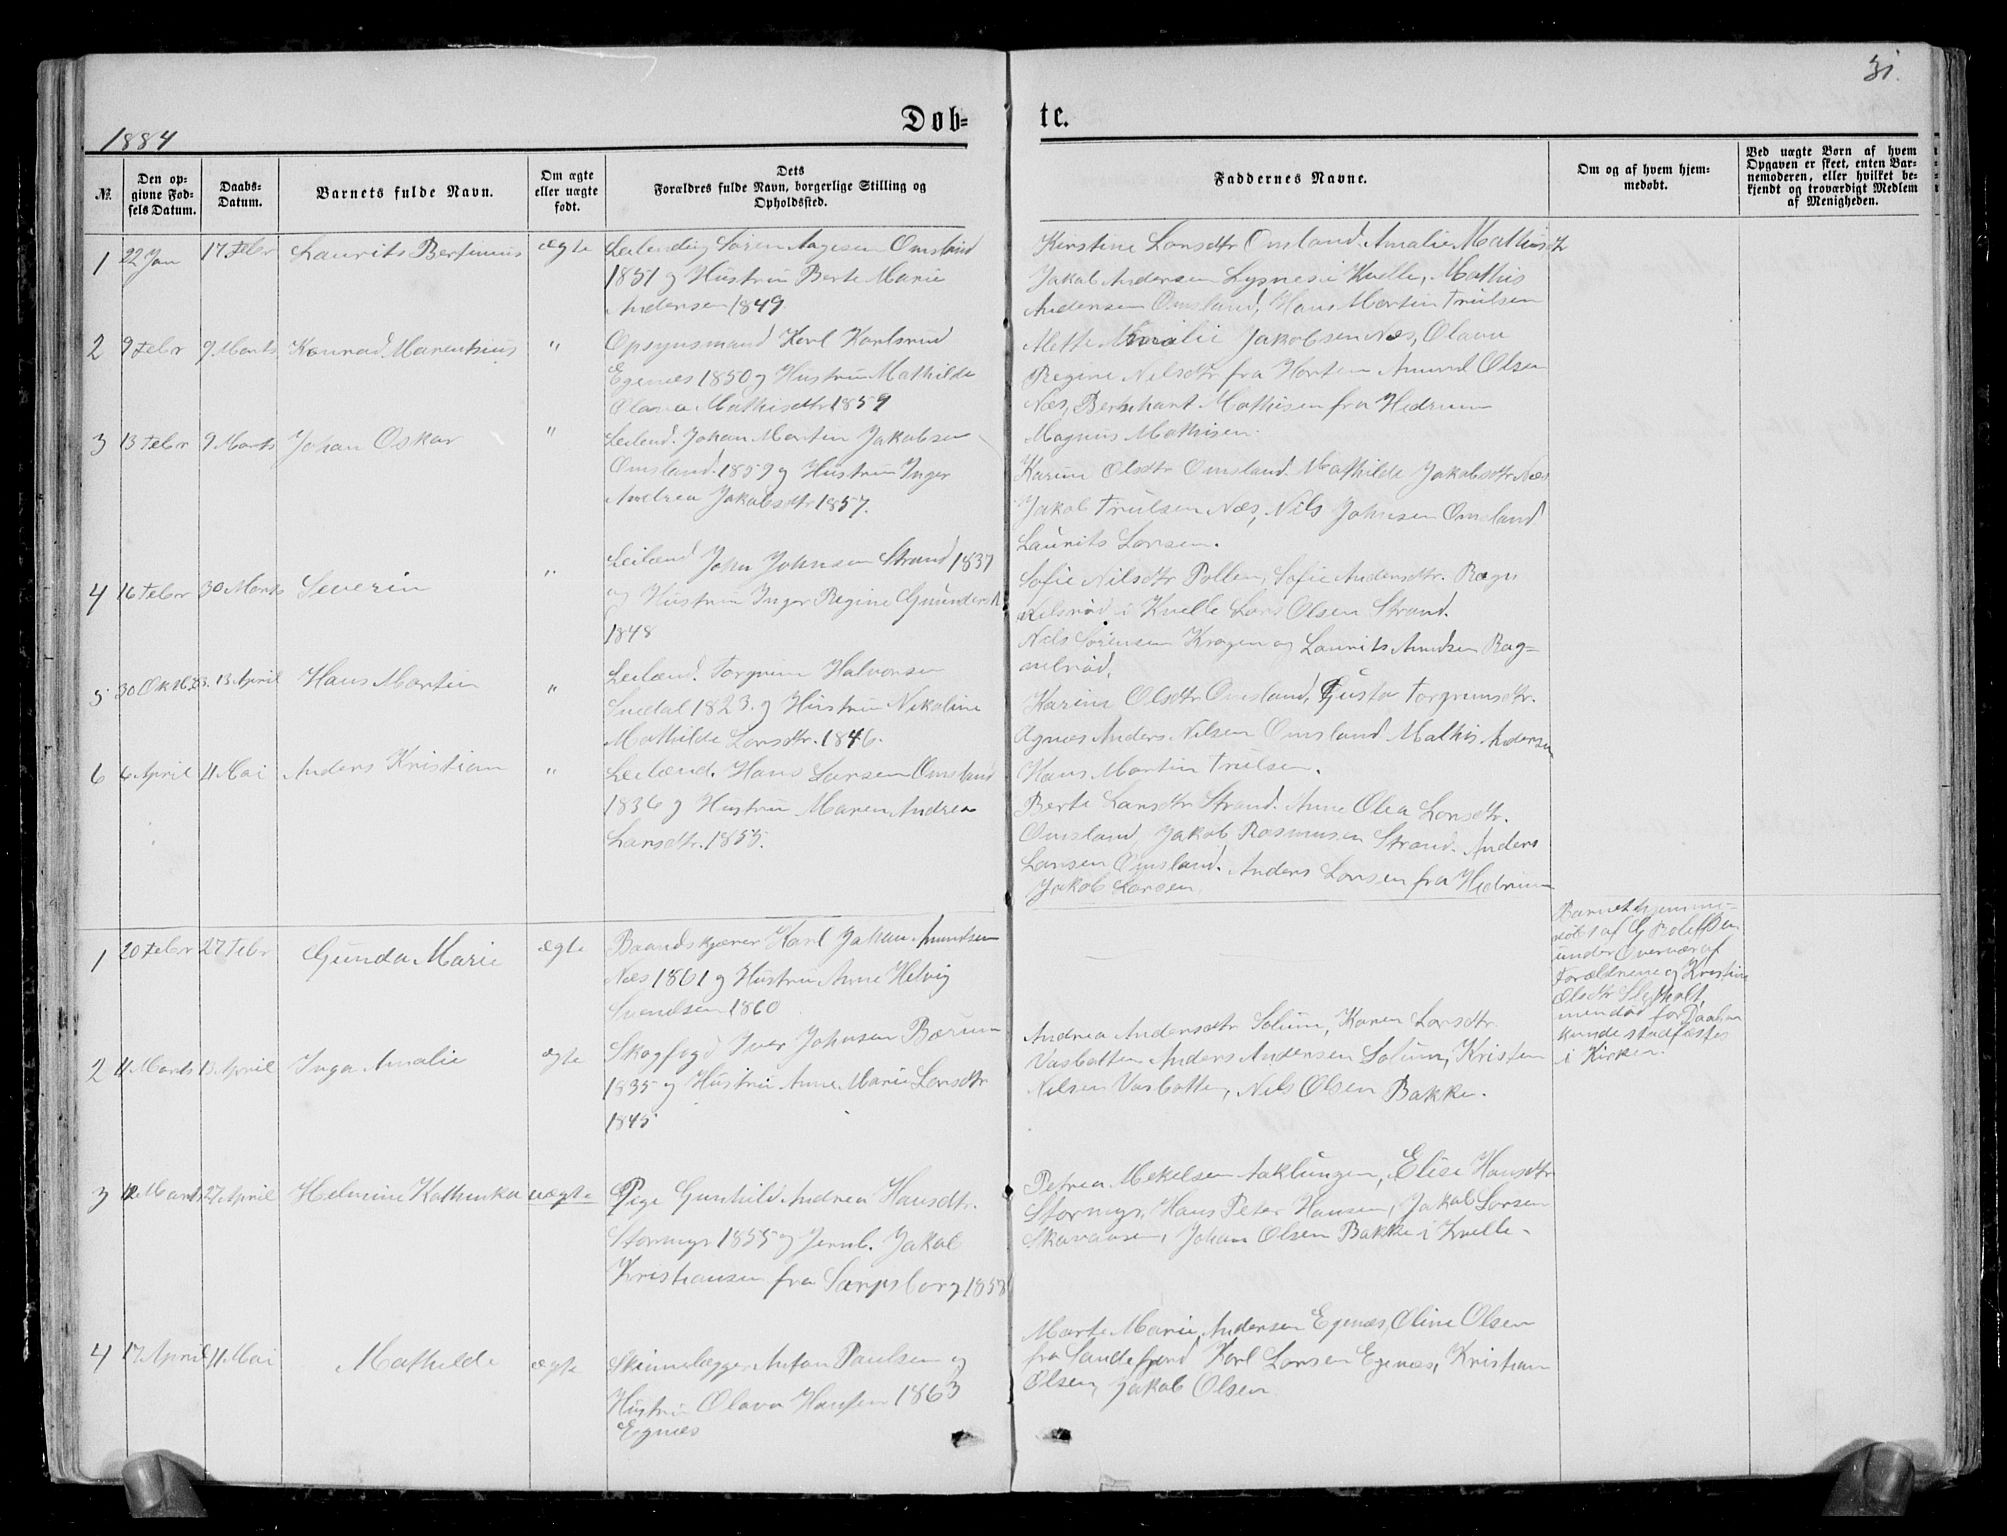 31.
1884
Døb=
te.
№.
Den op-
givne Fød-
sels Datum.
Daabs-
Datum.
Barnets fulde Navn.
Om ægte
eller uægte
født.
Dets
Forældres fulde Navn, borgerlige Stilling og
Opholdssted.
Faddernes Navne.
Om og af hvem hjem-
medøbt.
Ved uægte Børn af hvem
Opgaven er skeet, enten Bar-
nemoderen, eller hvilket be-
kjendt og troværdigt Medlem
af Menigheden.
1 22 Jan 17 Febr Laurits Bertinius ægte
Leilending Søren Aagesen Omsland
1851 og Hustru Berte Marie
Andersen 1849
Kirstine Larsdtr Omsland. Amalie Mathisdtr
Jakob Andersen Lysnes i Kvelle, Mathis
Andersen Omsland, Hans Martin Trulsen
2 9 Febr 9 Marts Konrad Marentius "
Opsynsmand Karl Karlsrud
Egenæs 1850 og Hustru Mathilde
Olava Mathisdtr 1859
Mette Amalie Jakobsen Næs, Olava
Regine Nilsdtr fra Horten Amund Olsen
Næs, Bernhart Mathisen fra Hedrum
Magnus Mathisen.
3 13 Febr 9 Marts Johan Oskar "
Leilend. Johan Martin Jakobsen
Omsland. 1859 og Hustru Inger
Andrea Jakobsdtr 1857.
Karine Olsdtr Omsland. Mathilde Jakobsdtr Næs
Jakob Trulsen Næs, Nils Johnsen Omsland
Laurits Larsen.
4 16 Febr 30 Marts Severin "
Leilænd John Johnsen Strand 1837
og Hustru Inger Regine Gundersdt
1848
Sofie Nilsdtr Pollen, Sofie Andersdtr. Ragn
elsrød i Kvelle Lars Olsen Strand.
Nils Sørensen Kragen og Laurits Amdsen Rag=
nelsrød.
5 30 Okt 83. 13 April Hans Martin "
Leilænd. Torgrim Halvorsen
1823. og Hustru Nikoline
Mathilde Larsdtr. 1846.
Karine Olsdtr Omsland, Gusta Torgrimsdtr.
Agnæs Anders Nilsen Omsland Mathis Andersen
Hans Martin Trulsen.
6 6 April 11 Mai Anders Kristian "
Leilænd. Hans Larsen Omsland
1836 og Hustru Maren Andrea
Larsdtr. 1855.
Berte Larsdtr Strand. Anne Olea Larsdtr.
Omsland, Jakob Rasmusen Strand. Anders
Larsen Omsland. Anders Larsen fra Hedrum
Jakob Larsen.
1 20 Febr 27 Febr Gunda Marie ægte
Baandskjærer Karl Johan Amundsen
Næs 1861 og Hustru Anne Helvig
Svendsen 1860
Barnet hjemme=
døbt af G
under Overvær af
Forældrene og Kristine
Olsdtr
men død før Daaben
kunde stadfæstes
i Kirken.
2 11 Marts 13 April Inga Amalie ægte
Skogfogd Iver Johnsen Bærum
1835 og Hustru Anne Marie Larsdtr
1845
Andrea Andersdtr Solum, Karen Larsdtr
Vasbotten Anders Andersen Solum, Kristen
Nilsen Vasbotten, Nils Olsen Bakke.
3 12 Marts 27 April Helmine Kathinka uægte
Pige Gunhild Andrea Hansdtr.
Stormyr 1855 og Jernb. Jakob
Kristiansen fra Sarpsborg 1858
Petrea Mekelsen Aaklungen, Elise Hansdtr
Stormyr, Hans Peter Hansen, Jakob Larsen
Skavaasen, Johan Olsen Bakke i Kvelle.
4 17 April 11 Mai Mathilde ægte
Skinnelægger Anton Paulsen og
Hustru Olava Hansen 1863
Egnæs
Marte Marie Andersen Egenæs, Oline Olsen
fra Sandefjord Karl Larsen Egenæs, Kristian
Olsen, Jakob Olsen